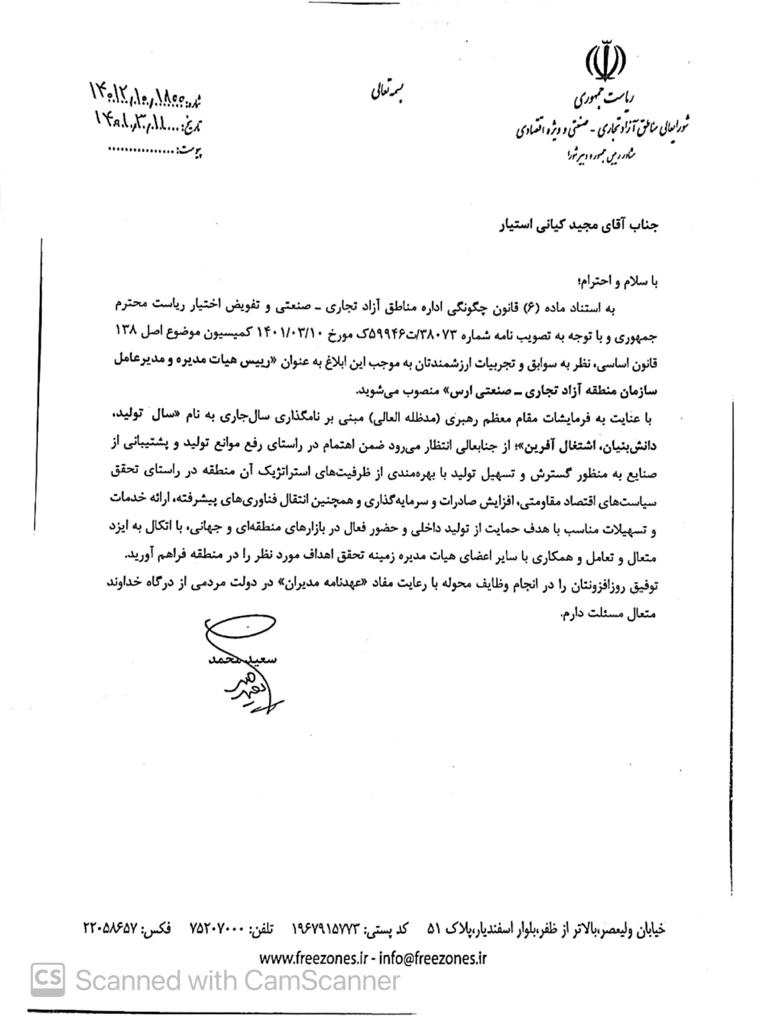 ریاست جمهوری
شورایعالی مناطق آزاد تجاری - صنعتی و ویژه اقتصادی
مشاور رییس جمهور و دبیر شورا
بسمه تعالی
شماره:
تاریخ:
پیوست: ................
جناب آقای مجید کیانی استیار
با سلام و احترام؛
به استناد ماده (۶) قانون چگونگی اداره مناطق آزاد تجاری – صنعتی و تفویض اختیار ریاست محترم
جمهوری و با توجه به تصویب نامه شماره ۳۸۰۷۳/ت۵۹۹۴۶ک مورخ ۱۴۰۱/۰۳/۱۰ کمیسیون موضوع اصل ۱۳۸
قانون اساسی، نظر به سوابق و تجربیات ارزشمندتان به موجب این ابلاغ به عنوان «رییس هیات مدیره و مدیرعامل
سازمان منطقه آزاد تجاری – صنعتی ارس» منصوب می‌شوید.
با عنایت به فرمایشات مقام معظم رهبری (مدظله العالی) مبنی بر نامگذاری سال‌جاری به نام «سال تولید،
دانش‌بنیان، اشتغال آفرین»؛ از جنابعالی انتظار می‌رود ضمن اهتمام در راستای رفع موانع تولید و پشتیبانی از
صنایع به منظور گسترش و تسهیل تولید با بهره‌مندی از ظرفیت‌های استراتژیک آن منطقه در راستای تحقق
سیاست‌های اقتصاد مقاومتی، افزایش صادرات و سرمایه‌گذاری و همچنین انتقال فناوری‌های پیشرفته، ارائه خدمات
و تسهیلات مناسب با هدف حمایت از تولید داخلی و حضور فعال در بازارهای منطقه‌ای و جهانی، با اتکال به ایزد
متعال و تعامل و همکاری با سایر اعضای هیات مدیره زمینه تحقق اهداف مورد نظر را در منطقه فراهم آورید.
توفیق روزافزونتان را در انجام وظایف محوله با رعایت مفاد «عهدنامه مدیران» در دولت مردمی از درگاه خداوند
متعال مسئلت دارم.
سعید محمد
خیابان ولیعصر،بالاتر از ظفر،بلوار اسفندیار،پلاک ۵۱ کد پستی: ۱۹۶۷۹۱۵۷۷۳ تلفن: ۷۵۲۰۷۰۰۰ فکس: ۲۲۰۵۸۶۵۷
www.freezones.ir - info@freezones.ir
CS Scanned with CamScanner